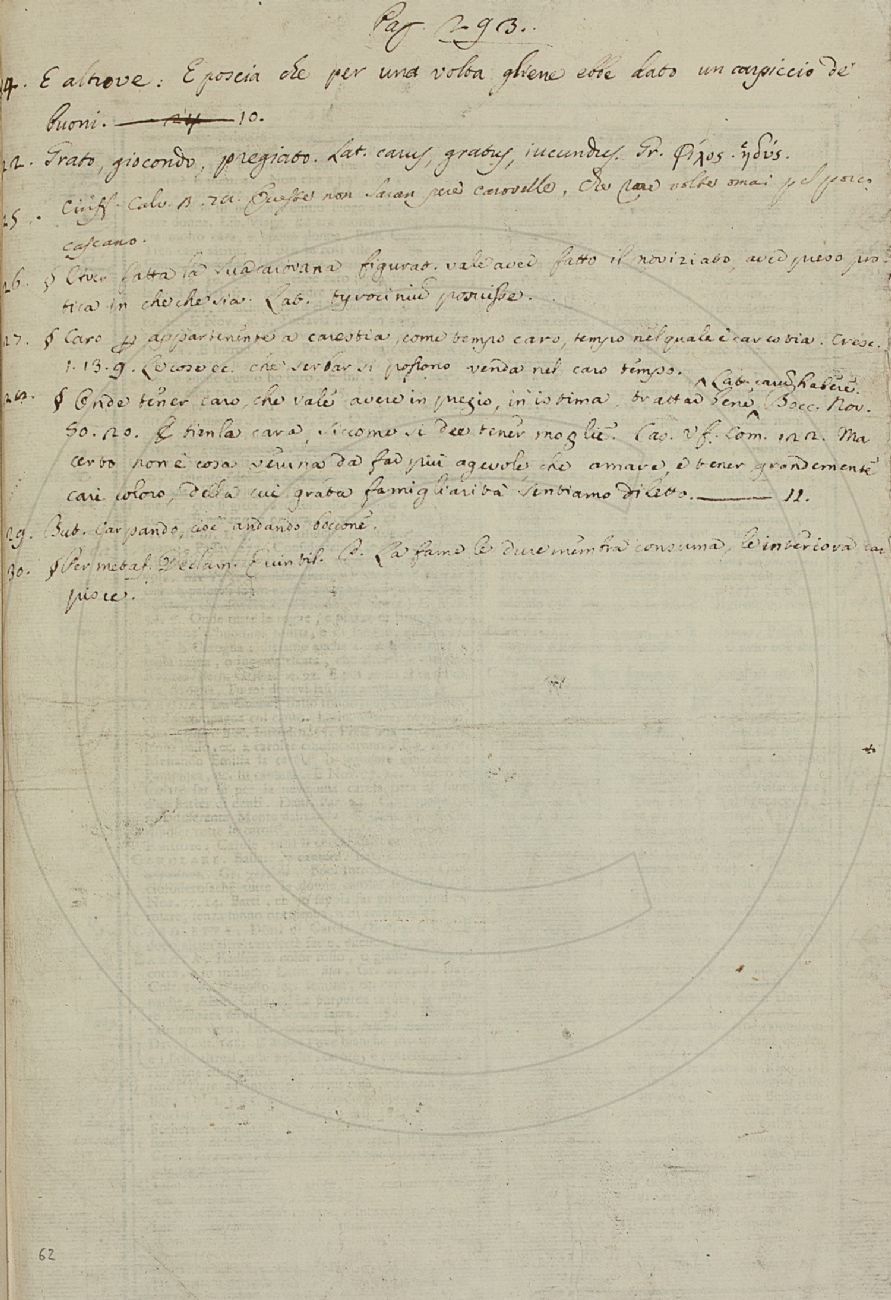 Pag. 293.
14. E altrove: E poscia che per una volta gliene ebbe dato un carpiccio de'
buoni. — 24 — 10.
22. Grato, giocondo, pregiato. Lat. carus, gratus, iucundus. Gr. φίλος. ἡδύς.
25. Ciriff. Calv. Queste non saran però carovelle, Che volte omai pel porco
cascano.
26. § Aver fatta la sua carovana figurat. vale aver fatto il noviziato, aver preso pra-
tica in checchesia. Lat. tyrocinium posuisse.
27. § Caro appartenente a carestia, come tempo caro, tempo nel quale è carestia. Cresc.
1. 13. 9. Le cose ec. che serbar si possono venda nel caro tempo.
^ Lat. carum habere.
28. § Onde tener caro, che vale avere in pregio, in istima, trattar bene ^ Bocc. Nov.
80. 20. E tienla cara, siccome si dee tener moglie. Cas. Uf. Com. 122. Ma
certo non è cosa veruna da far più agevole, che amare, e tener grandemente
cari coloro, della cui grata famigliarità sentiamo diletto. — 11.
29. But. Carpando, cioè andando boccone.
30. § Per metaf. Declam. Quintil. P. La fame le dure membra consuma, le interiora car
pisce.
62